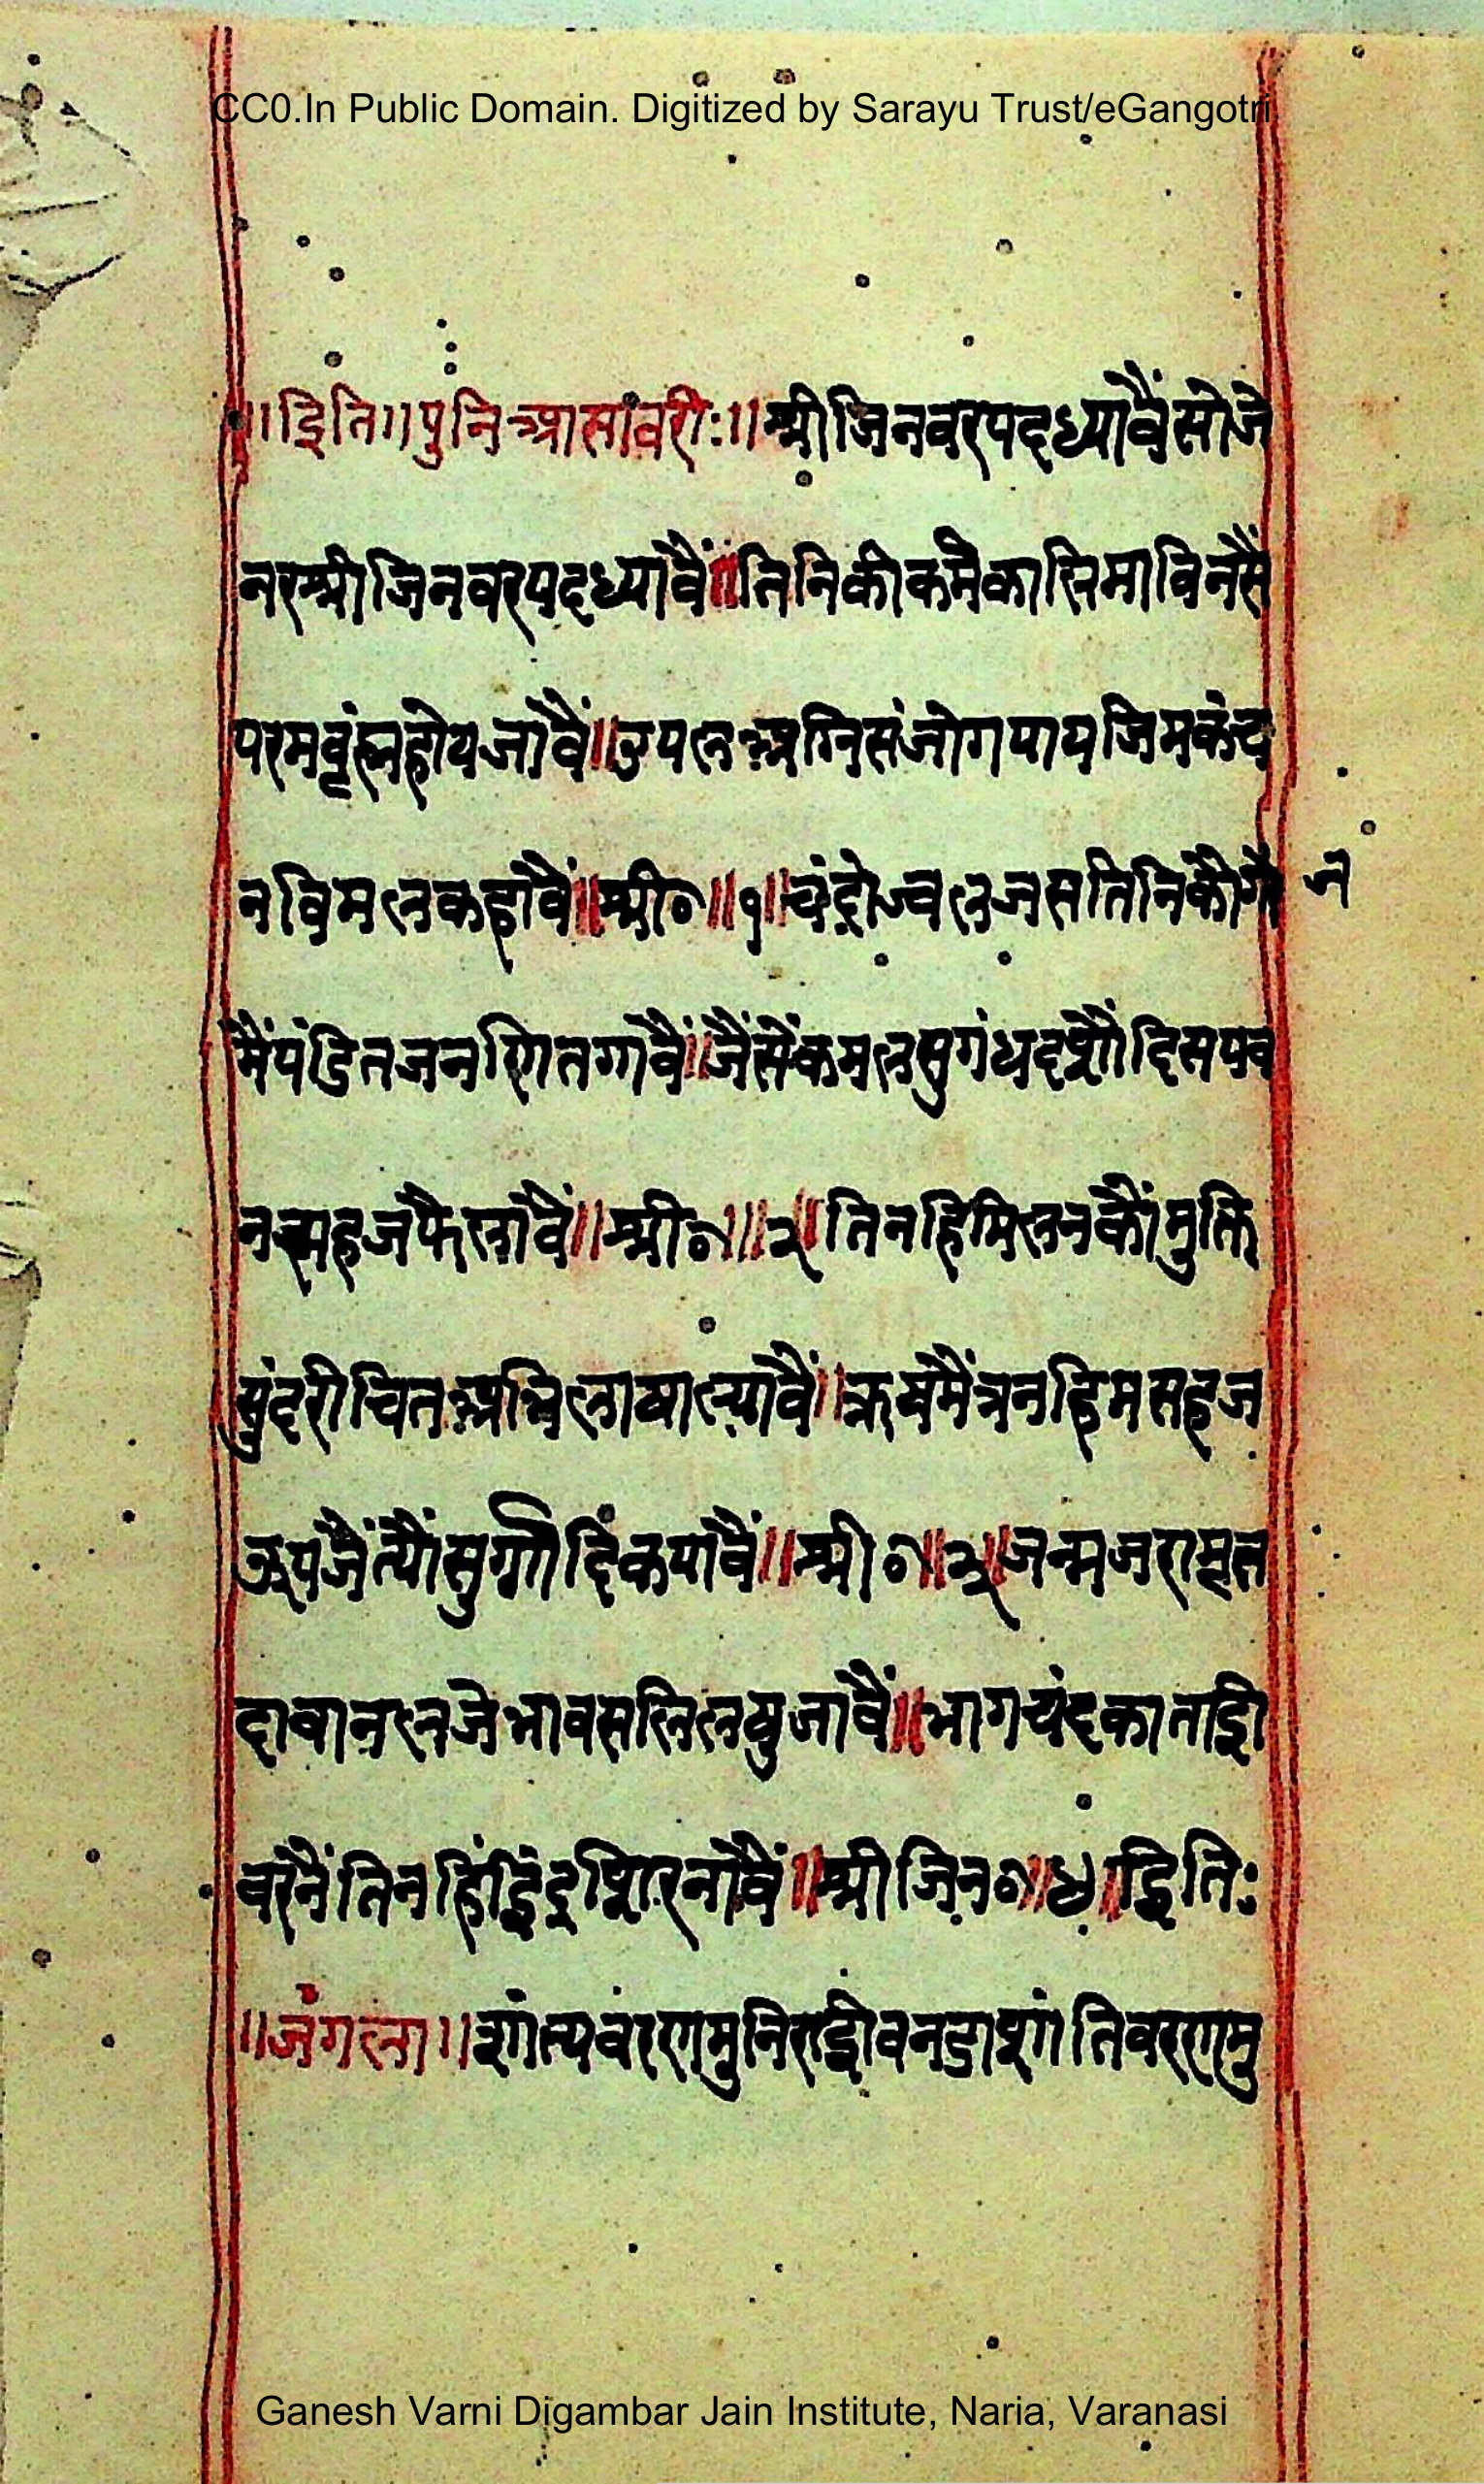 CC0.In Public Domain. Digitized by Sarayu Trust/eGangotri
॥इति॥पुनिआसावरीः॥श्रीजिनवरपदध्यावैंसोजे
नरश्रीजिनवरपदध्यावैं॥तिनिकीकर्मकालिमाविनसैं
परमवृंह्महोयजावैं॥उपलअग्निसंजोगपायजिमकंच
नविमलकहावैं॥श्री०॥१॥चंद्रोज्वलजसतिनिकौगै न
मैंपंडितजनणितगावैं॥जैंसेंकमलसुगंधदशौंदिसपव
नसहजफैलावैं॥श्री०॥२॥तिनहिमिलनकौंमुक्ति
सुंदरीचितअभिलाषाल्यावैं॥ऋषमैंत्रनहिमसहज
ऊपजैंत्यौंसुर्गादिकपावैं॥श्री०॥३॥जन्मजरामृत
दावानलजेभावसलिलसुजावैं॥भागचंदकाताई
वरनैंतिनहिंइंद्रशिरनावैं॥श्रीजिन०॥४॥इतिः
॥जंगला॥शांत्यवंरणमुनिराईवनडाशांतिवरणमु
Ganesh Varni Digambar Jain Institute, Naria, Varanasi